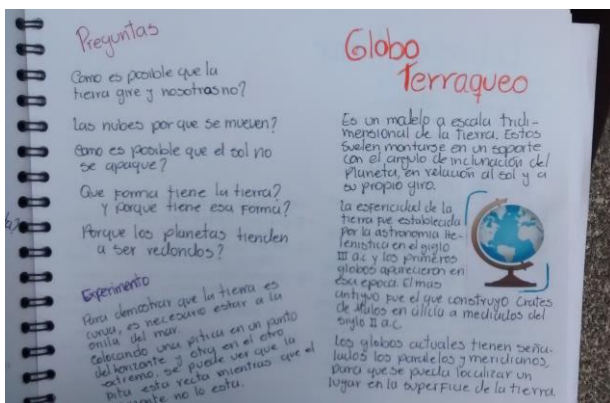 Preguntas
Como es posible que la
tierra gire y nosotras no?
Las nubes por que se mueven?
Como es posible que el sol no
se apaque?
Que forma tiene la tierra?
y porque tiene esa forma?
Porque los planetas tienden
a ser redondos?
Experimento
Para demostrar que la tierra es
curva, es necesario estar a la
orilla del mar.
colocando una pitica en un punto
del horizonte y otra en el otro
extremo. se puede ver que la
pita esta recta mientras que el
no lo esta.
Globo
Terraqueo
Es un modelo a escala tridi-
mensional de la tierra. Estos
suelen montarse en un soporte
con el angulo de inclunación del
planeta, en relación al sol y a
su propio giro.
La esfericidad de la
tierra fue establecida
por la astronomia He-
lenistica en el siglo
III a.c y los primeros
globos aparecieron en
esa epoca. El mas
antiguo fue el que construyo Crates
de Malos en cilicia a mediados del
siglo II a.c.
Los globos actuales tienen seña-
lados los paralelos y meridianos,
para que se pueda localizar un
lugar en la superficie de la tierra.